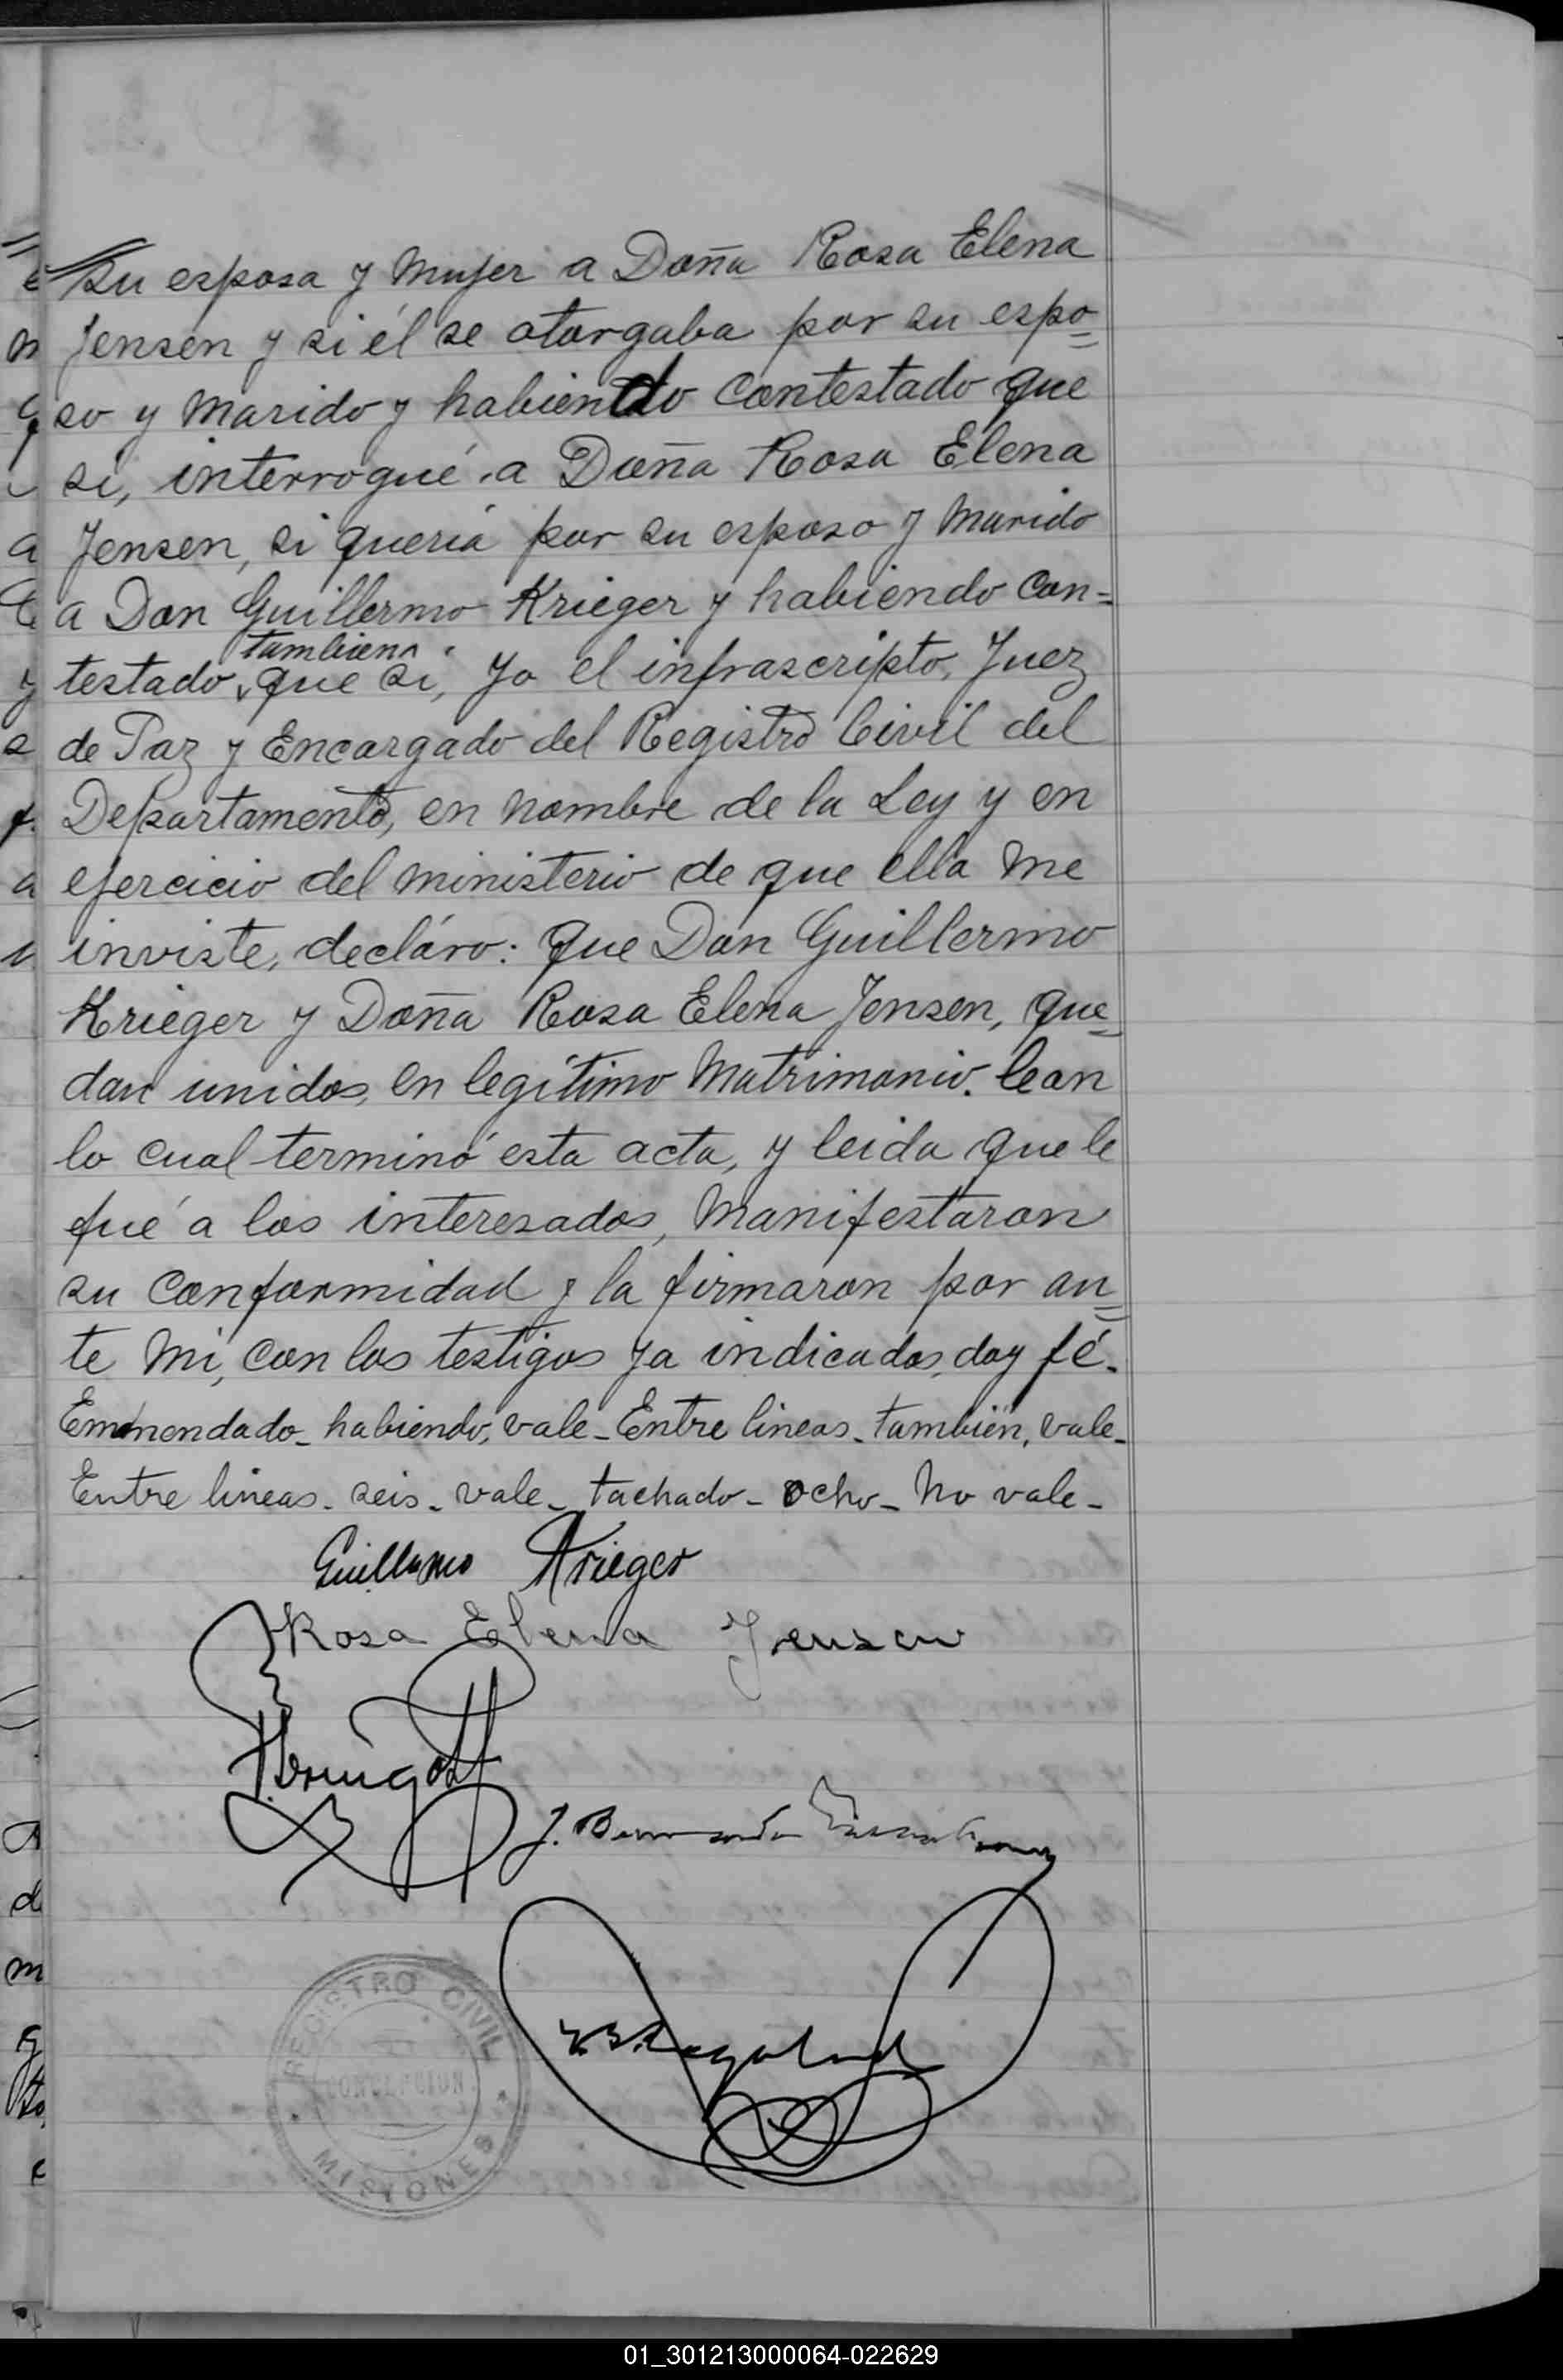 su esposa y mujer a Doña Rosa Elena
Jensen y si él se otorgaba por su espo=
so y marido y habiendo contestado que
si, interrogué a Doña Rosa Elena
Jensen, si quería por su esposo y marido
a Don Guillermo Krieger y habiendo con=
tambien
testado que si, yo el infrascripto, Juez
de Paz y Encargado del Registro Civil del
Departamento, en nombre de la Ley y en
ejercicio del ministerio de que ella me
inviste, decláro: que Don Guillermo
Krieger y Doña Rosa Elena Jensen, que=
dan unidos, en legítimo matrimonio. Con
lo cual terminó esta acta, y leida que le
fué a los interesados, manifestaron
su conformidad y la firmaron por an=
te mi, con los testigos ya indicados, doy fé.
Emmendado_ habiendo, vale_ Entre lineas_ también, vale_
Entre lineas_ seis_ vale_ tachado_ ocho_ no vale_
Guillermo Krieger
Rosa Elena Jensen
J.
REGISTRO CIVIL
CONCEPCION
MISIONES
01_301213000064-022629